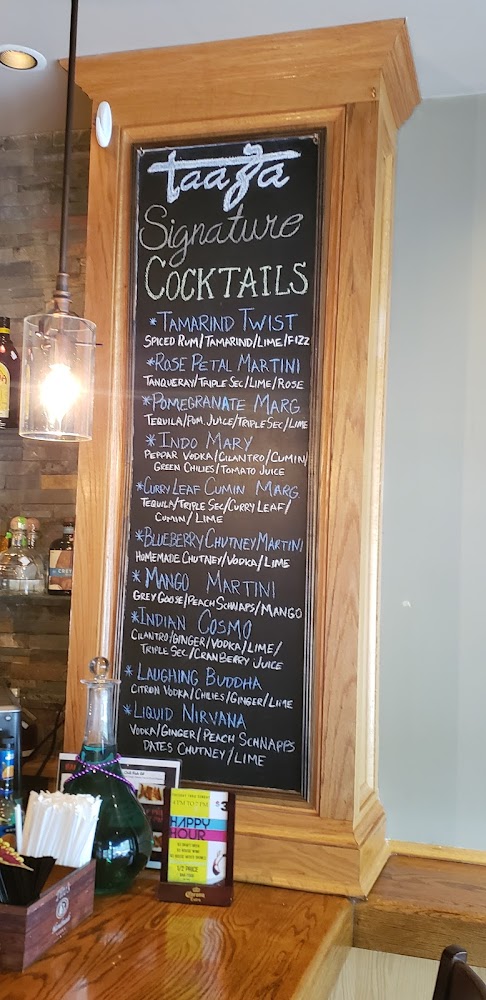 taaza
Signature
COCKTAILS
*TAMARIND TWIST
SPICED RUM/TAMARIND/LIME/FIZZ
*ROSE PETAL MARTINI
TANQUERAY/TRIPLE SEC/LIME/ROSE
*POMEGRANATE MARG
TEQUILA/POM. JUICE/TRIPLE SEC/LIME
*INDO MARY
PEPPAR VODKA/CILANTRO/CUMIN/
GREEN CHILIES/TOMATO JUICE
*CURRY LEAF CUMIN MARG.
TEQUILA/TRIPLE SEC/CURRY LEAF/
CUMIN/LIME
*BLUEBERRY CHUTNEY MARTINI
HOMEMADE CHUTNEY/VODKA/LIME
*MANGO MARTINI
GREY GOOSE/PEACH SCHNAPS/MANGO
*INDIAN COSMO
CILANTRO/GINGER/VODKA/LIME/
TRIPLE SEC/CRANBERRY JUICE
*LAUGHING BUDDHA
CITRON VODKA/CHILIES/GINGER/LIME
*LIQUID NIRVANA
VODKA/GINGER/PEACH SCHNAPPS
DATES CHUTNEY/LIME
4PM TO 7PM
$3
HAPPY
HOUR
1/2 PRICE
Corona